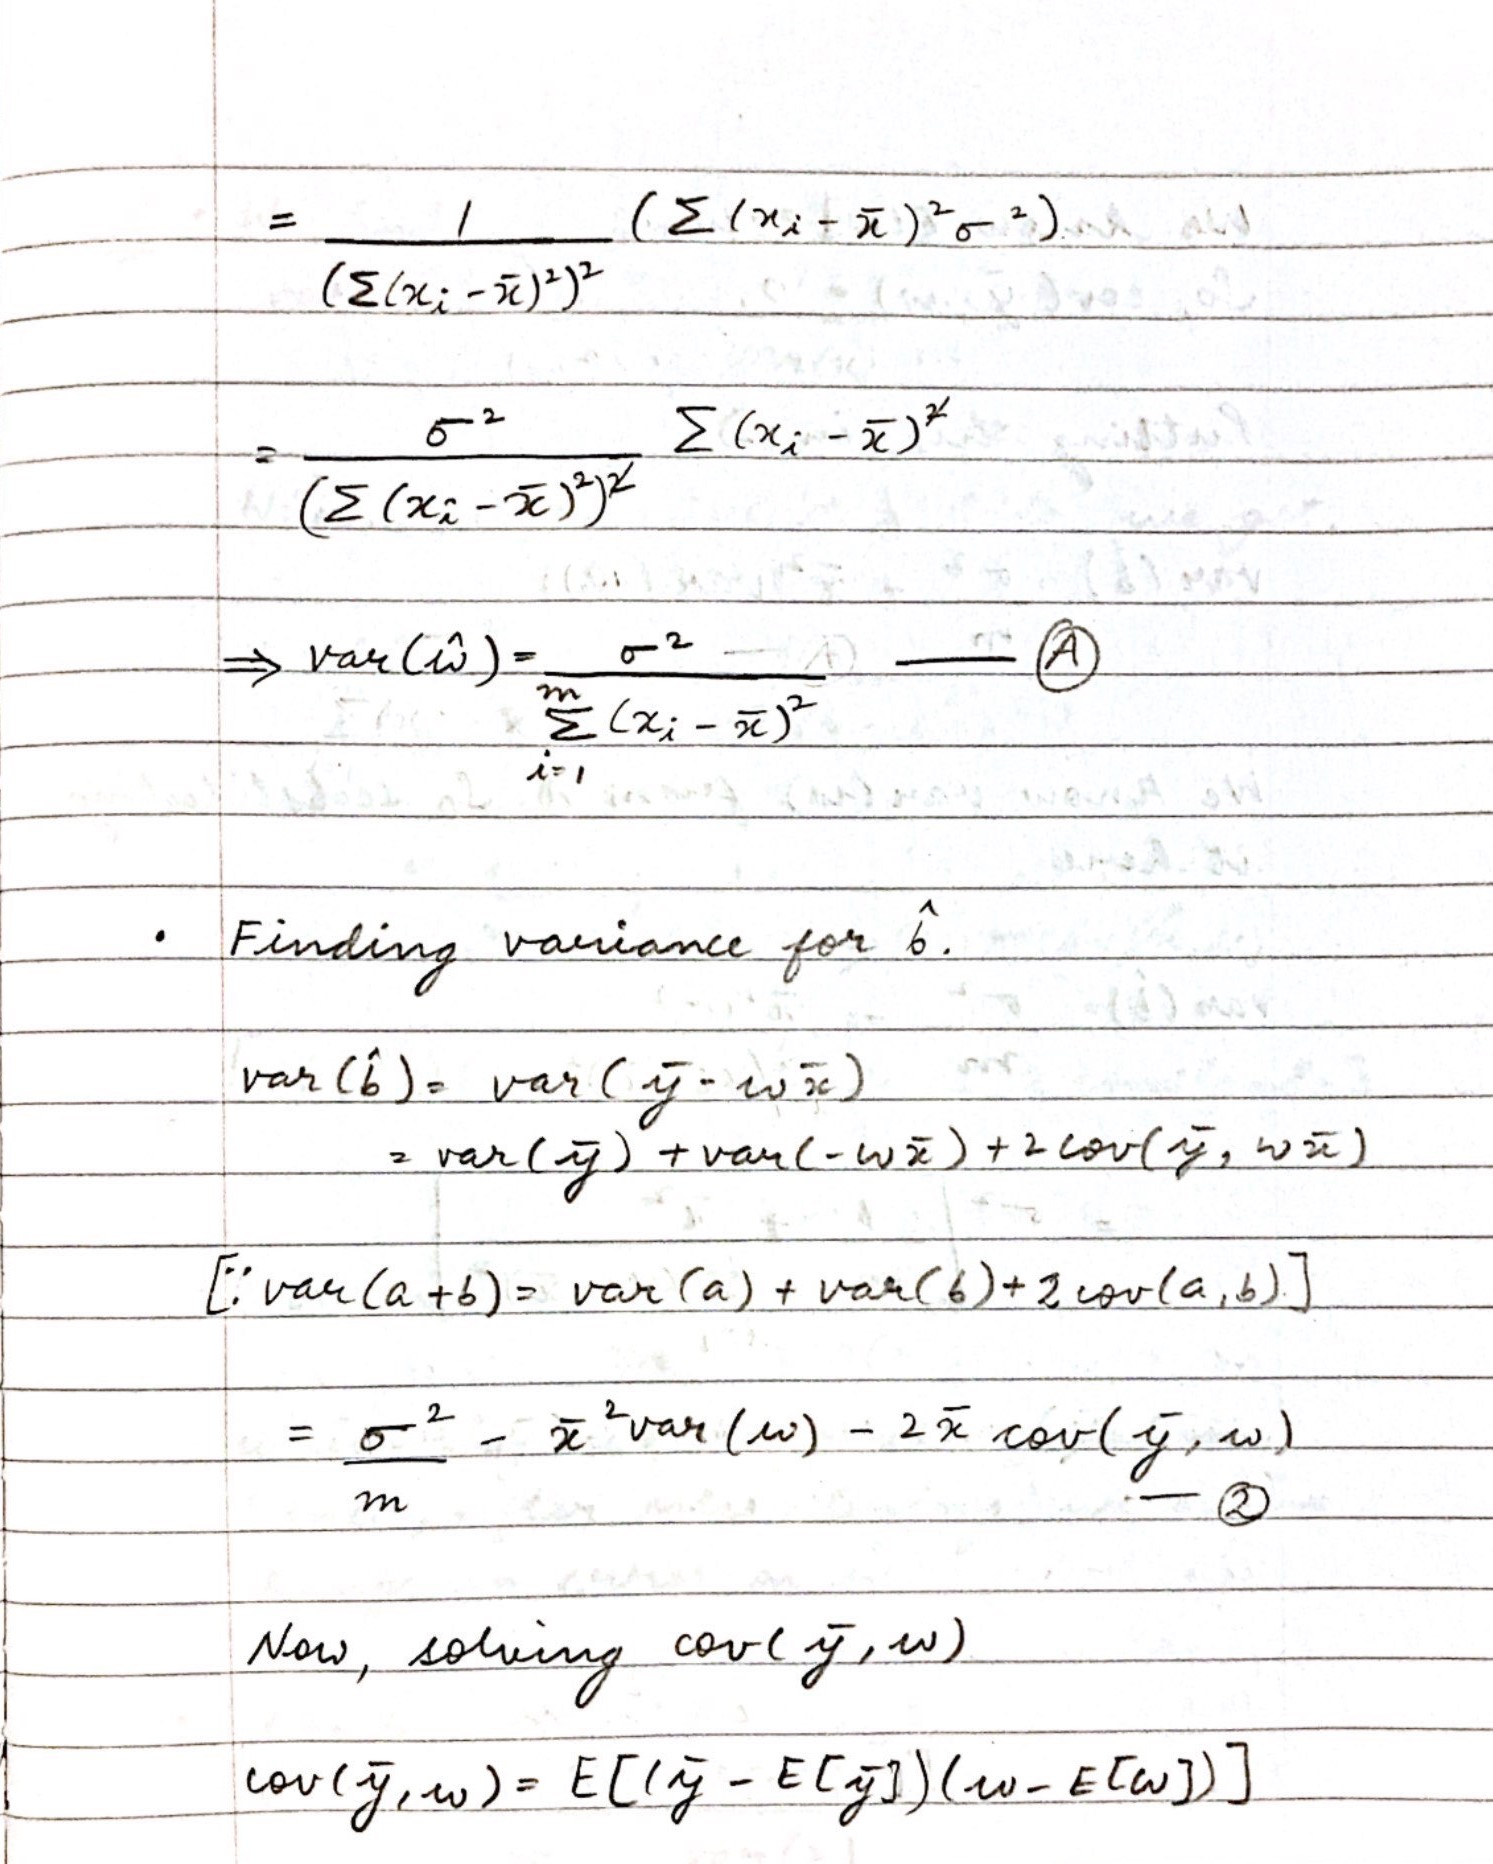 = 1 / (Σ(xᵢ - x̄)²)² (Σ(xᵢ - x̄)²σ²)
= σ² / (Σ(xᵢ - x̄)²)² Σ(xᵢ - x̄)²
⇒ var(ŵ) = σ² / Σᵢ₌₁ᵐ (xᵢ - x̄)² — Ⓐ
• Finding variance for b̂.
var(b̂) = var(ȳ - wx̄)
= var(ȳ) + var(-wx̄) + 2cov(ȳ, wx̄)
[∵ var(a+b) = var(a) + var(b) + 2cov(a,b)]
= σ²/m - x̄²var(w) - 2x̄ cov(ȳ, w)
— ②
Now, solving cov(ȳ, w)
cov(ȳ, w) = E[(ȳ - E[ȳ])(w - E[w])]